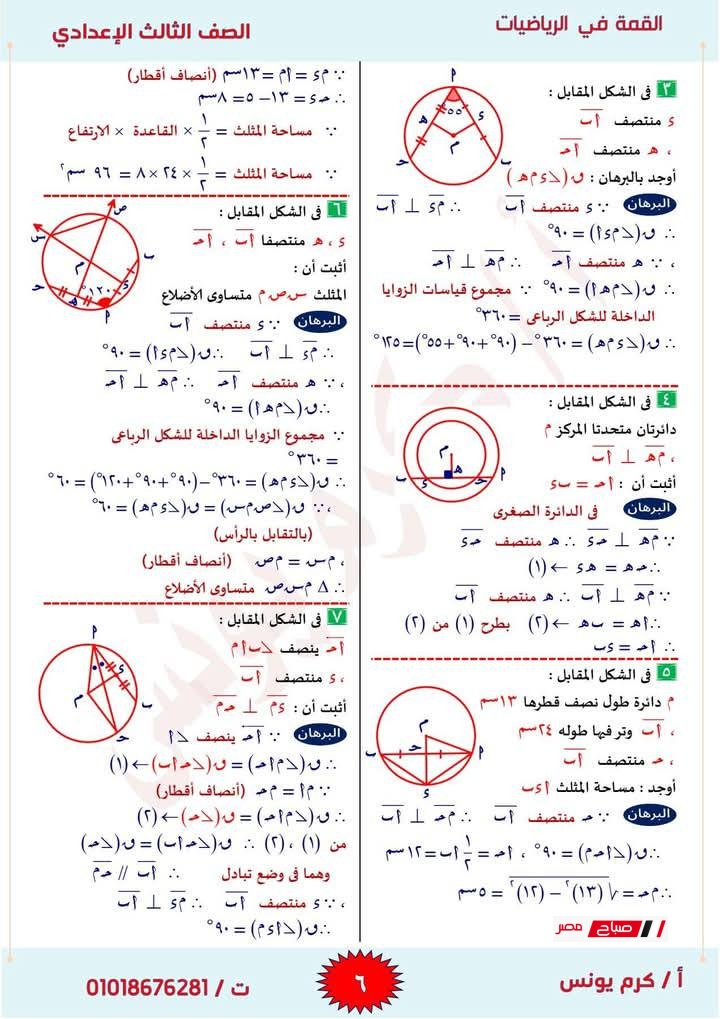 القمة في الرياضيات
الصف الثالث الإعدادي
٣ فى الشكل المقابل :
ء منتصف أب
، ه منتصف أحـ
أوجد بالبرهان : ق(∠ء م ه)
م
٥٥°
ه
ء
م
حـ
ب
البرهان ∵ ء منتصف أب ∴ م ء ⊥ أب
∴ ق(∠م ء أ) = ٩٠°
، ∵ ه منتصف أحـ ∴ م ه ⊥ أحـ
∴ ق(∠م ه أ) = ٩٠° ∵ مجموع قياسات الزوايا
الداخلة للشكل الرباعى = ٣٦٠°
∴ ق(∠ء م ه) = ٣٦٠° – (٩٠° + ٩٠° + ٥٥°) = ١٢٥°
٤ فى الشكل المقابل :
دائرتان متحدتا المركز م
، م ه ⊥ أب
أثبت أن : أحـ = ب ء
م
ه
ب ء حـ أ
البرهان فى الدائرة الصغرى
∵ م ه ⊥ حـ ء ∴ ه منتصف حـ ء
∴ حـ ه = ه ء ← (١)
∵ م ه ⊥ أب ∴ ه منتصف أب
∴ أه = ب ه ← (٢) بطرح (١) من (٢)
∴ أحـ = ب ء
٥ فى الشكل المقابل :
م دائرة طول نصف قطرها ١٣سم
، أب وتر فيها طوله ٢٤سم
، حـ منتصف أب
أوجد : مساحة المثلث أ ء ب
م
ب حـ أ
ء
البرهان ∵ حـ منتصف أب ∴ م حـ ⊥ أب
∴ ق(∠أ حـ م) = ٩٠° ، أحـ = ١/٢ أب = ١٢سم
∴ م حـ = √(١٣)² – (١٢)² = ٥سم
∵ م ء = أم = ١٣سم (أنصاف أقطار)
∴ حـ ء = ١٣ – ٥ = ٨سم
∵ مساحة المثلث = ١/٢ × القاعدة × الارتفاع
∵ مساحة المثلث = ١/٢ × ٢٤ × ٨ = ٩٦ سم²
٦ فى الشكل المقابل :
ء ، ه منتصفا أب ، أحـ
أثبت أن :
المثلث س ص م متساوى الأضلاع
ص
س
ب
م
ء
١٢٠°
حـ
ه
أ
البرهان ∵ ء منتصف أب
∴ م ء ⊥ أب ∴ ق(∠م ء أ) = ٩٠°
، ∵ ه منتصف أحـ ∴ م ه ⊥ أحـ
∴ ق(∠م ه أ) = ٩٠°
∵ مجموع الزوايا الداخلة للشكل الرباعى
= ٣٦٠°
∴ ق(∠ء م ه) = ٣٦٠° – (٩٠° + ٩٠° + ١٢٠°) = ٦٠°
، ∵ ق(∠ص م س) = ق(∠ء م ه) = ٦٠°
(بالتقابل بالرأس)
، م س = م ص (أنصاف أقطار)
∴ Δ م س ص متساوى الأضلاع
٧ فى الشكل المقابل :
أحـ ينصف ∠ب أ م
، ء منتصف أب
أثبت أن : ء م ⊥ حـ م
أ
ء
م
ب
حـ
البرهان ∵ أحـ ينصف ∠أ
∴ ق(∠م أ حـ) = ق(∠حـ أ ب) ← (١)
∵ م أ = م حـ (أنصاف أقطار)
∴ ق(∠م أ حـ) = ق(∠حـ) ← (٢)
من (١) ، (٢) ∴ ق(∠حـ أ ب) = ق(∠حـ)
وهما فى وضع تبادل ∴ أب // حـ م
، ∵ ء منتصف أب ∴ م ء ⊥ أب
∴ ق(∠أ ء م) = ٩٠°
صباح مصر
أ / كرم يونس
٦
ت / 01018676281